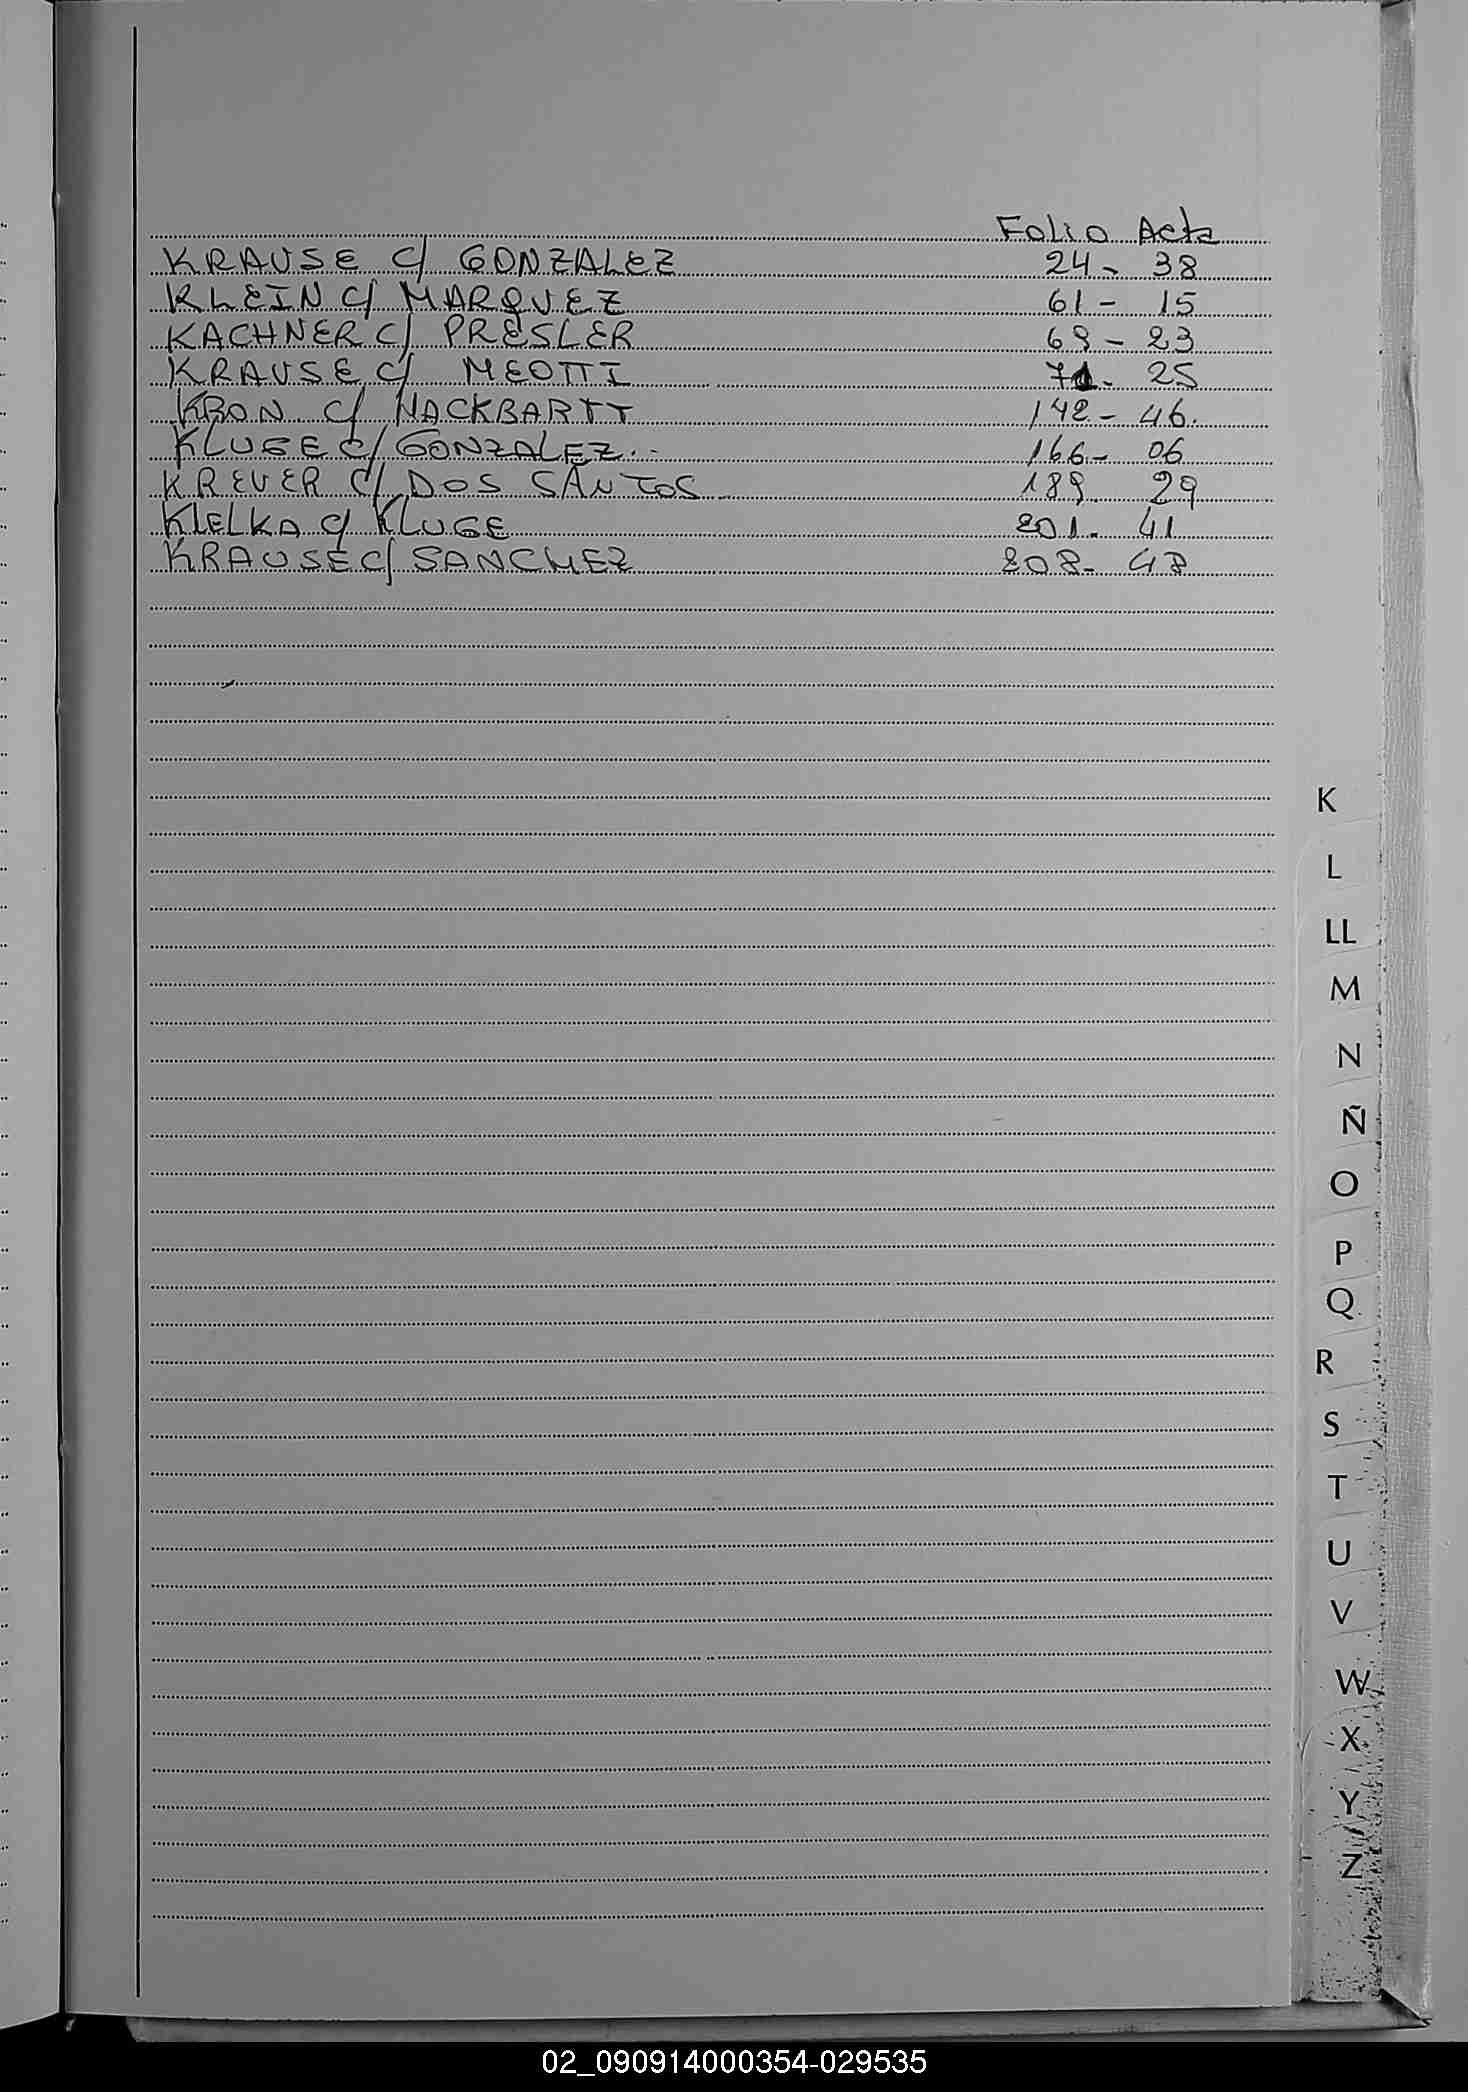 Folio Acta
KRAUSE C/ GONZALEZ 24- 38
KLEIN C/ MARQUEZ 61- 15
KACHNER C/ PRESLER 69-23
KRAUSE C/ MEOTTI 71- 25
KRON C/ HACKBARTT 142- 46.
KLUGE C/ GONZALEZ.- 166- 06
KREVER C/ DOS SANTOS 189 29
KIELKA C/ KLUGE 201- 41
KRAUSE C/ SANCHEZ 208- 48
K
L
LL
M
N
Ñ
O
P
Q
R
S
T
U
V
W
X
Y
Z
02_090914000354-029535